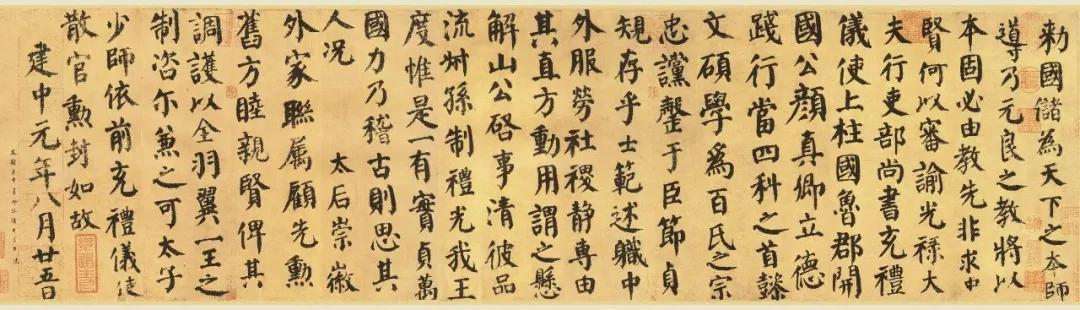 勑國儲為天下之本師
導乃元良之教將以
本固必由教先非求中
賢何以審諭光祿大
夫行吏部尚書充禮
儀使上柱國魯郡開
國公顏真卿立德
踐行當四科之首懿
文碩學爲百氏之宗
忠讜罄于臣節貞
規存乎士範述職中
外服勞社稷靜專由
其直方動用謂之懸
解山公啓事清彼品
流叔孫制禮光我王
度惟是一有實貞萬
國力乃稽古則思其
人況 太后崇徽
外家聯屬顧先勳
舊方睦親賢俾其
調護以全羽翼一王之
制咨尔兼之可太子
少師依前充禮儀使
散官勳封如故
建中元年八月廿五日